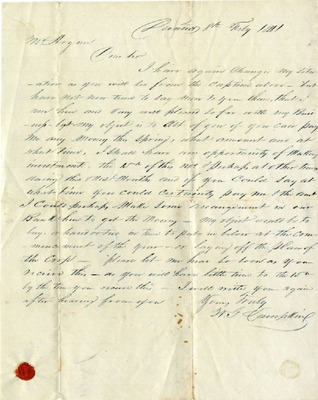 8th Feby 1841
Mr Rogers
Dear Sir
I have again Change my Situ-
ation as you will see from the Caption above - but
have not now time to say more to you than that I
am here and very well pleased so far with my Situa-
My object is to Ask of you if you Can pay
Me any Money this Spring & what amount and at
what time. I Shall have an opportunity of Making
the 15th of this Mo. & perhaps another time
during this & next Month and if you Could Say at
what time you Could Certainly pay me & the amt
I Could perhaps Make Some arrangement in our
Bank here to get the Money - My object would be to
buy a hand or two in time to put in below at the com-
mencement of the year - or laying off the plan of
the Crop - Please let me hear as soon as you
receive this - as you will have little time to the 15th
by the time you receive this - I will write you again
after hearing from you
Yours Truly